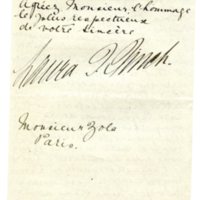 Agréez Monsieur l'hommage
les plus respectueux
de votre sincère
Laura
Monsieur Zola
Paris.